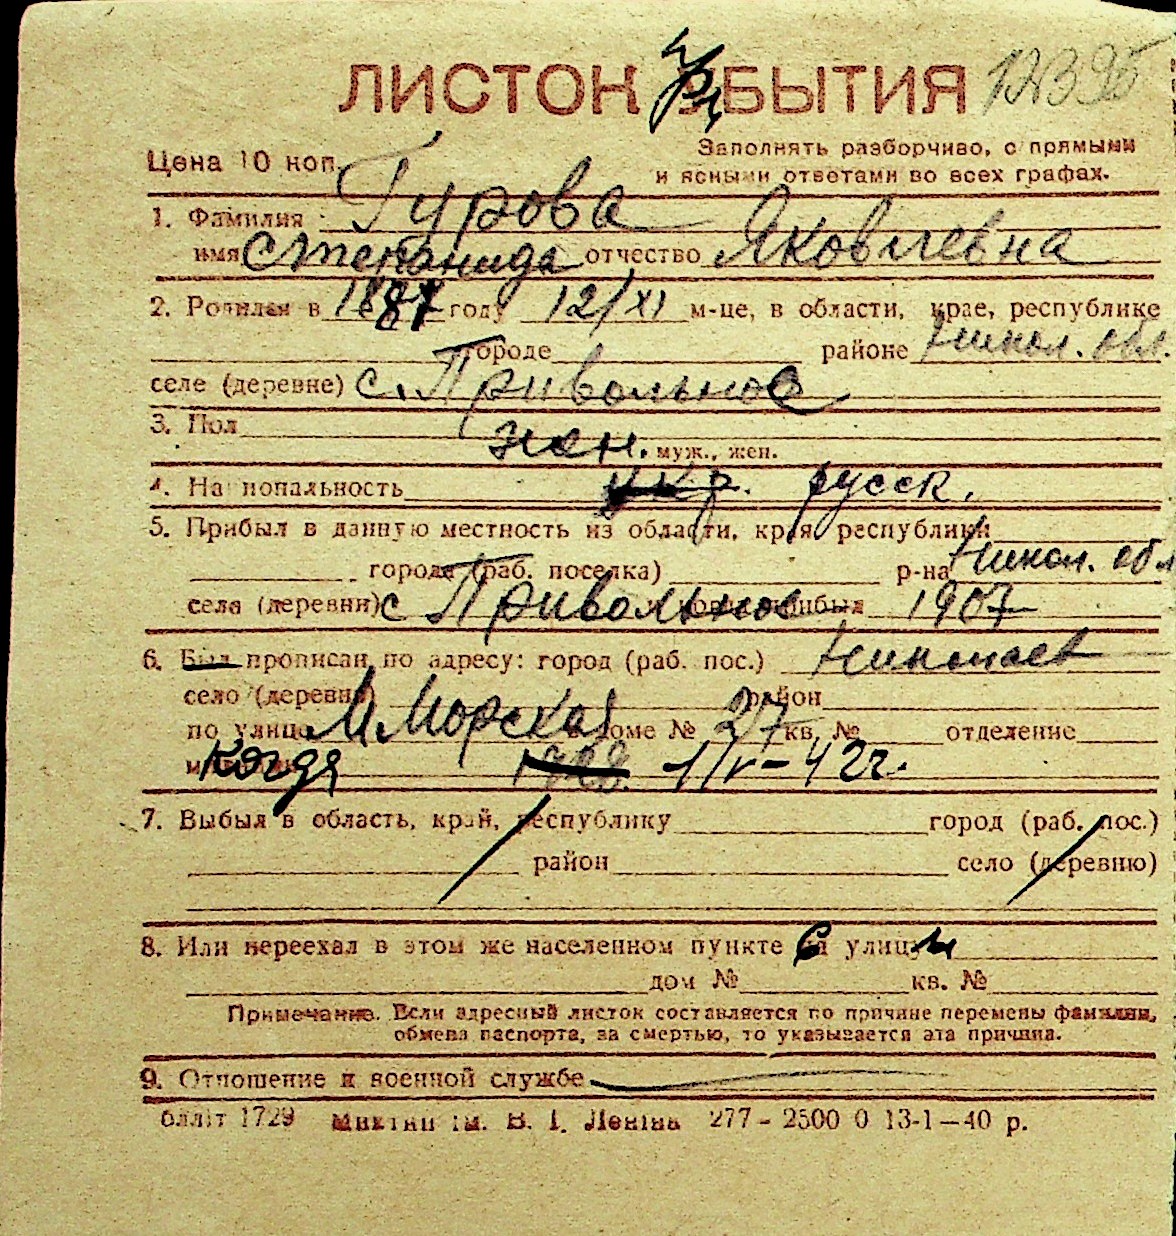 ЛИСТОК ПРИБЫТИЯ 12395
Цена 10 коп.
Заполнять разборчиво, с прямыми
и ясными ответами во всех графах.
1. Фамилия Гурова
имя Степанида отчество Яковлевна
2. Родилая в 1887 году 12/XI м-це, в области, крае, республике
городе районе Никол. обл.
селе (деревне) с. Привольное
3. Пол жен. муж., жен.
4. Национальность укр. русск.
5. Прибыл в данную местность из области, края, республики
города (раб. поселка) р-на Никол. обл
села (деревни) с Привольное когда прибыл 1907
6. Был прописан по адресу: город (раб. пос.) Николаев
село (деревня) район
по улице М. Морская доме № 27 кв. № отделение
когда 1/IV-42г.
7. Выбыл в область, край, республику город (раб. пос.)
район село (деревню)
8. Или переехал в этом же населенном пункте с улицы
дом № кв. №
Примечание. Если адресный листок составляется по причине перемены фамилии,
обмена паспорта, за смертью, то указывается эта причина.
9. Отношение к военной службе
блліт 1729 ім. В. І. Леніна 277 - 2500 0 13-1-40 р.